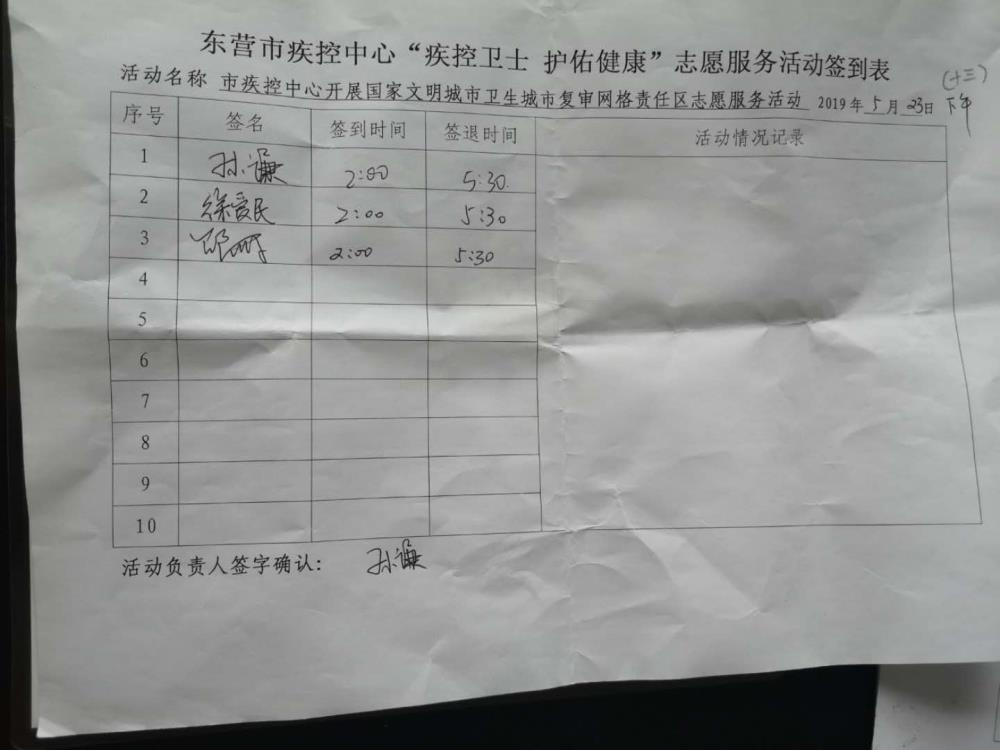 东营市疾控中心“疾控卫士 护佑健康”志愿服务活动签到表
(十三)
活动名称 市疾控中心开展国家文明城市卫生城市复审网格责任区志愿服务活动 2019年5月23日 下午
序号 签名 签到时间 签退时间 活动情况记录
1 孙谦 2:00 5:30.
2 徐爱民 2:00 5:30
3 2:00 5:30
4
5
6
7
8
9
10
活动负责人签字确认: 孙谦